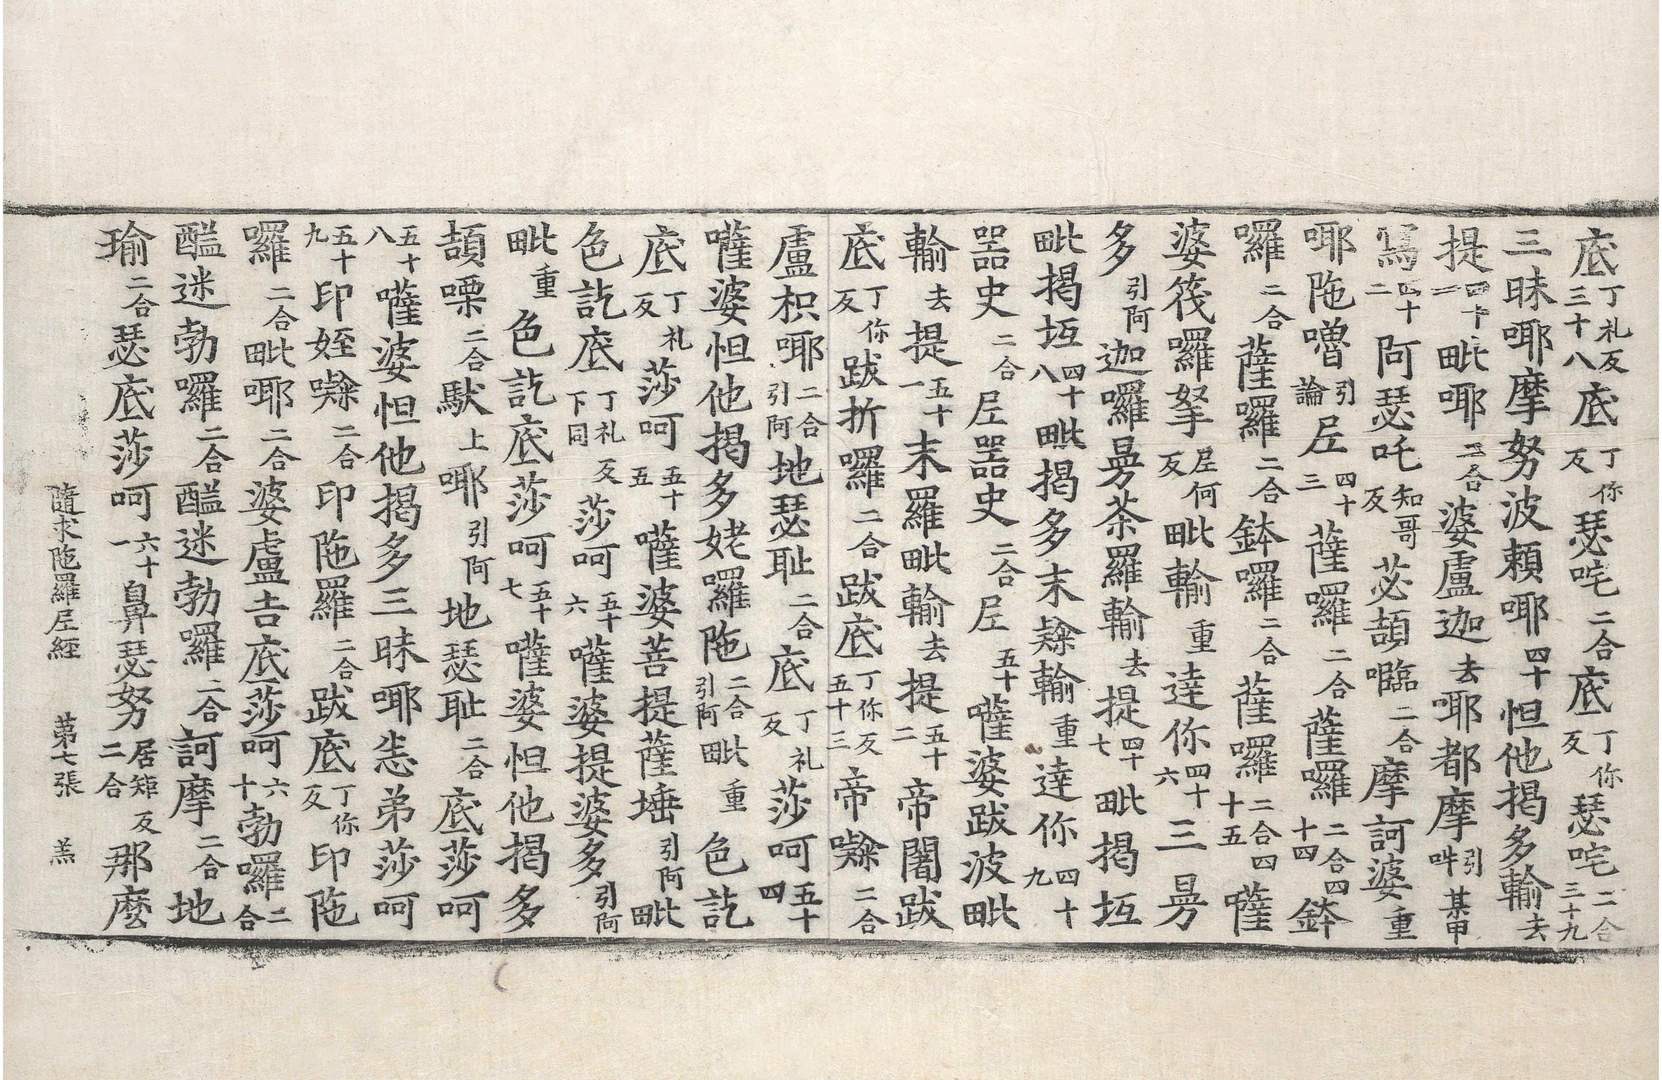 底丁礼反三十八底丁你反瑟咤二合底丁你反瑟咤二合三十九
三昧耶摩努波賴耶四十怛他揭多輸去
提四十一毗耶二合婆盧迦去耶都摩引吽某甲
寫四十二阿瑟吒知哥反苾頡㘑二合摩訶婆重
耶陁嚕引論𡰱四十三薩囉二合薩囉二合四十四鉢
囉二合薩囉二合鉢囉二合薩囉二合四十五薩
婆筏囉拏𡰱何反毗輸重達你四十六三曼
多引阿迦囉曼荼羅輸去提四十七毗揭垣
毗揭垣四十八毗揭多末㘕輸重達你四十九
器史二合𡰱器史二合𡰱五十薩婆跋波毗
輸去提五十一末羅毗輸去提五十二帝闍跋
底丁你反跋折囉二合跋底丁你反五十三帝㘕二合
盧枳耶二合引阿地瑟耻二合底丁礼反莎呵五十四
薩婆怛他揭多姥囉陁二合引阿毗重色訖
底丁礼反莎呵五十五薩婆菩提薩埵引阿毗
色訖底丁礼反下同莎呵五十六薩婆提婆多引阿
毗重色訖底莎呵五十七薩婆怛他揭多
頡㗚二合馱上耶引阿地瑟耻二合底莎呵
五十八薩婆怛他揭多三昧耶悉弟莎呵
五十九印姪㘕二合印陁羅二合跋底丁你反印陁
囉二合毗耶二合婆盧吉底莎呵六十勃囉二合
醯迷勃囉二合醯迷勃囉二合訶摩二合地
瑜二合瑟底莎呵六十一鼻瑟努居矩反二合那麼
隨求陁羅𡰱經 苐七張 𮏮